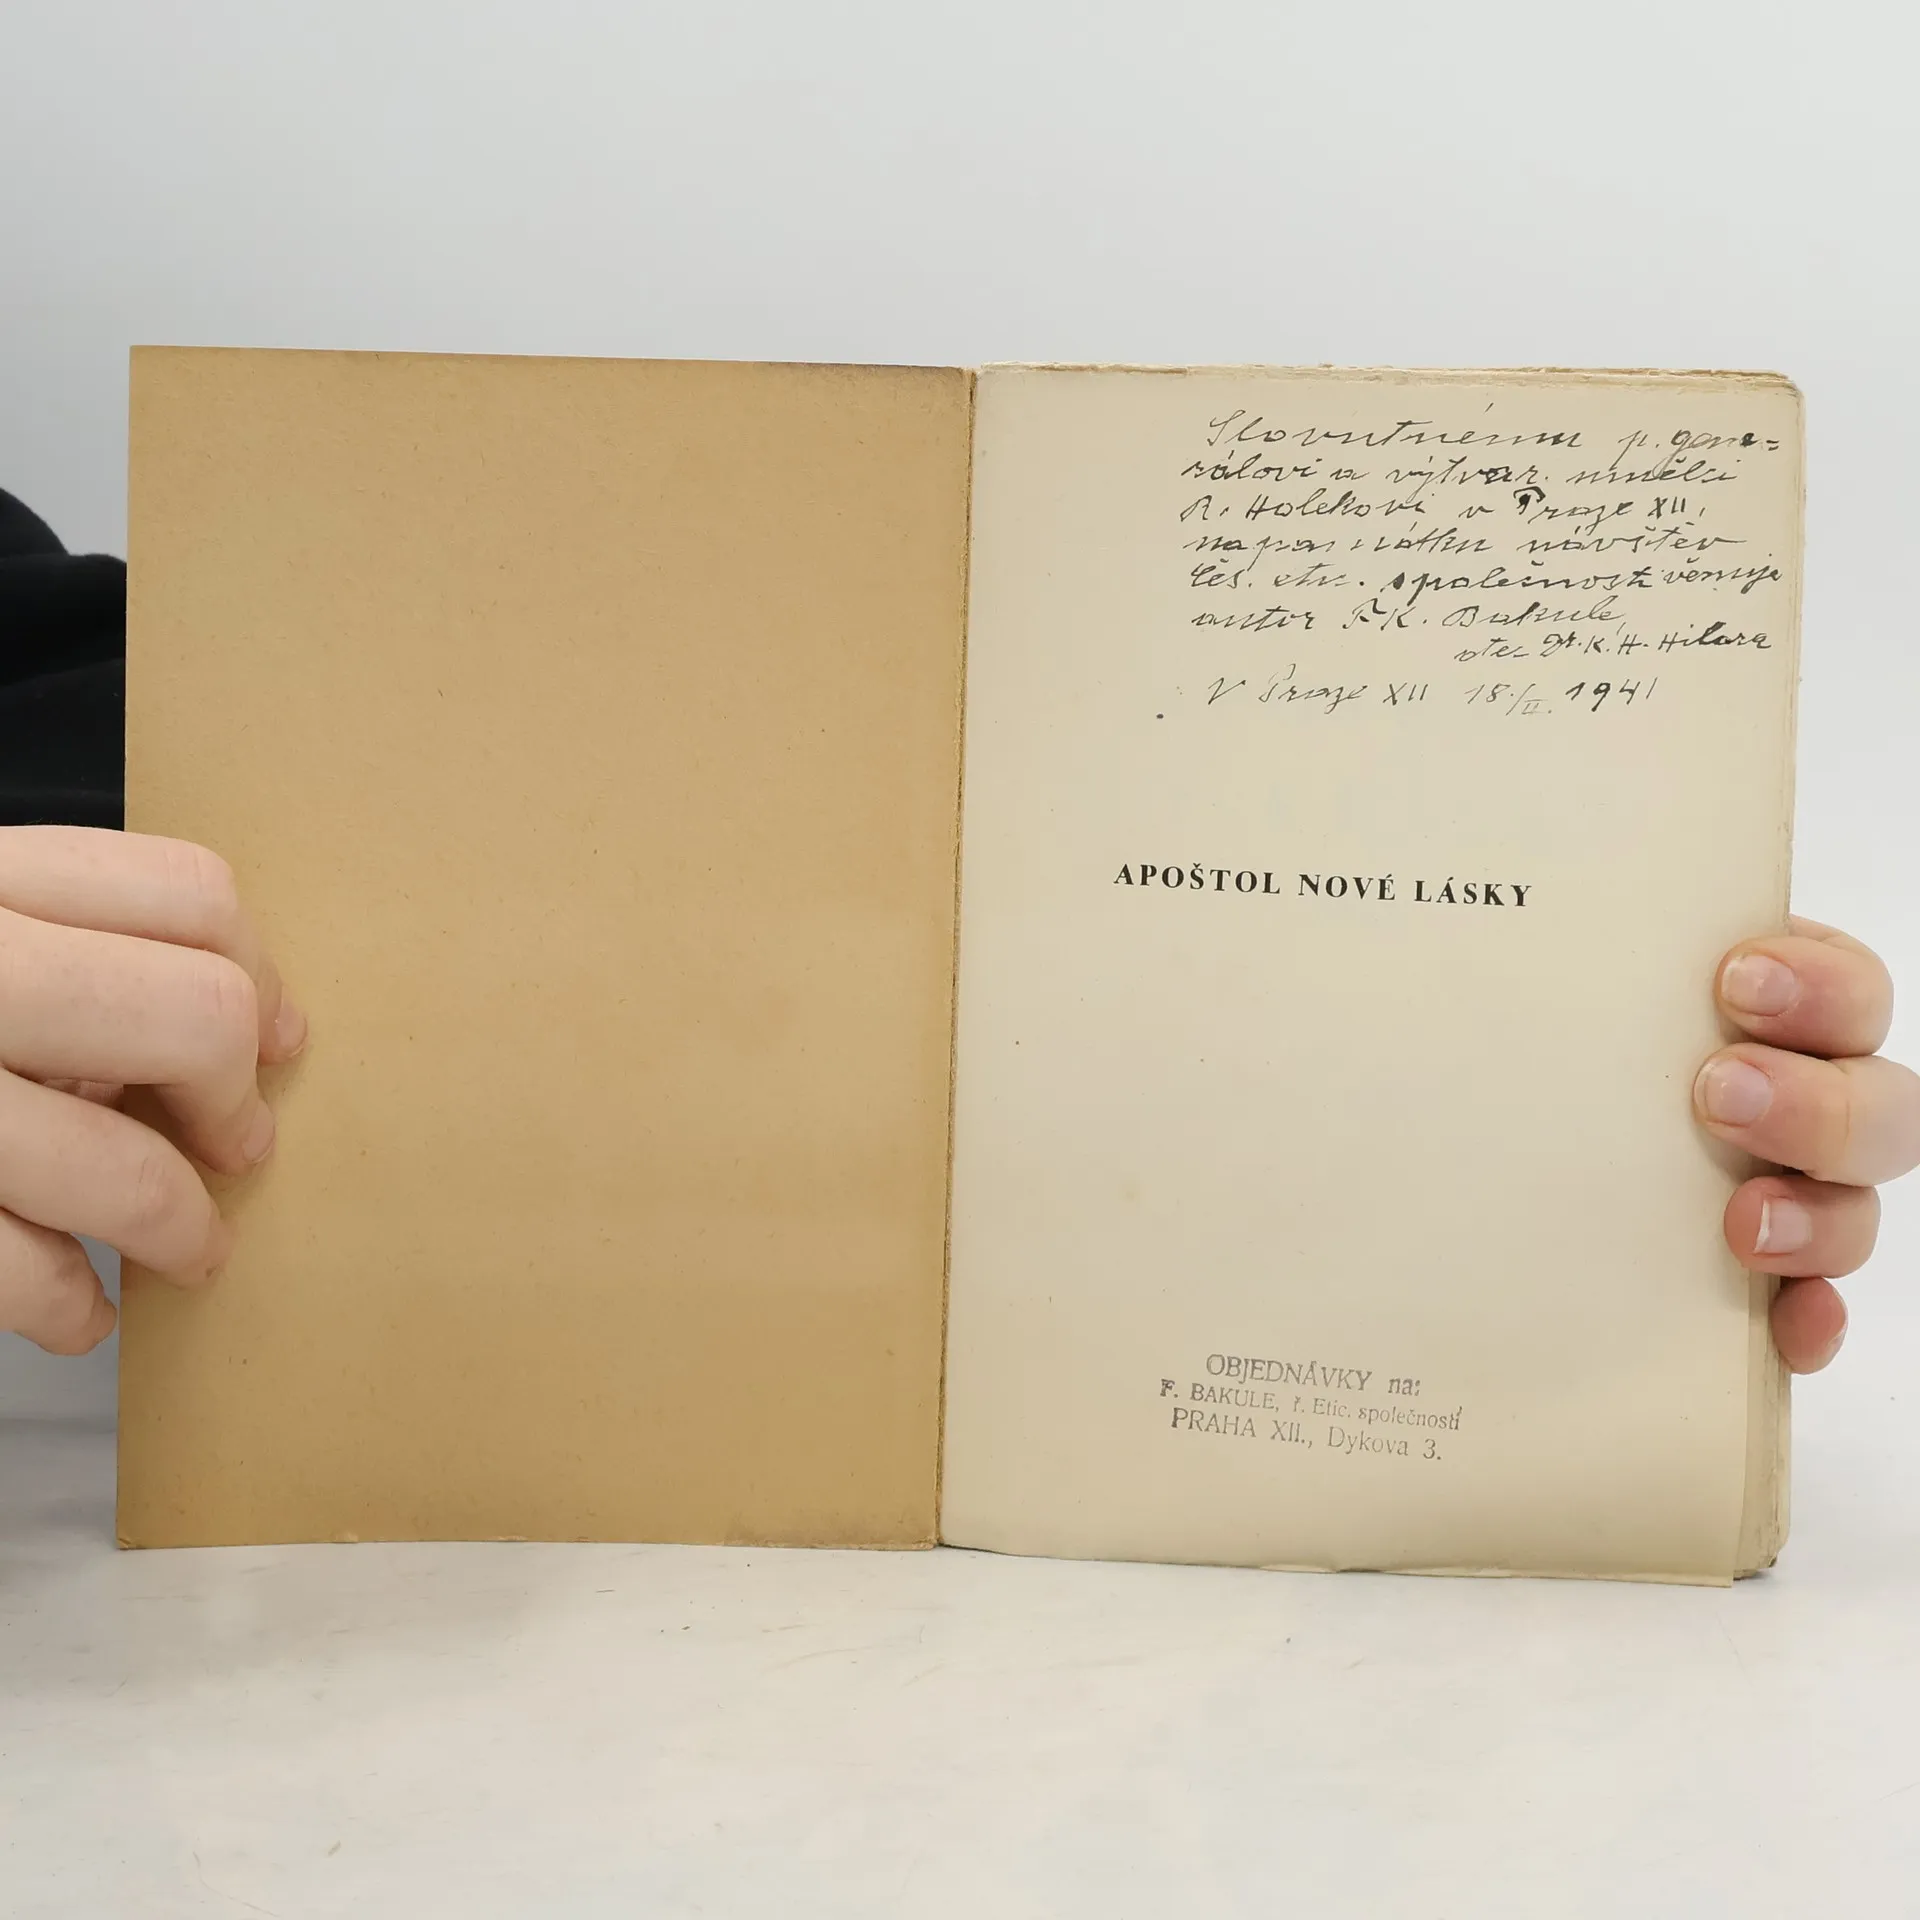 Slovutnému p. gene-
rálovi a výtvar. umělci
R. Holekovi v Praze XII,
na památku návštěv
Čes. etic. společnosti věnuje
autor F. K. Bakule,
otec Dr. K. H. Hilara
V Praze XII 18./II. 1941
APOŠTOL NOVÉ LÁSKY
OBJEDNÁVKY na:
F. BAKULE, ř. Etic. společnosti
PRAHA XII., Dykova 3.